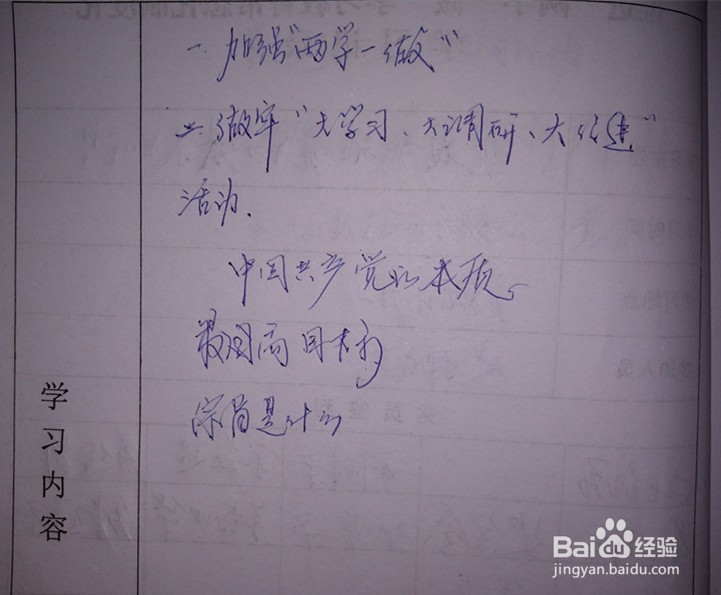 一. 加强"两学一做"
二. 做牢"大学习、大调研、大促进"
活动.
中国共产党的本质。
最高目标
宗旨是什么
学习内容
Baidu经验
jingyan.baidu.com